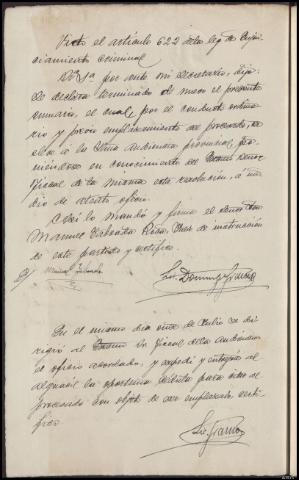 Visto el artículo 622 de la ley de Enjui-
ciamiento criminal
Sª por ante mi Secretario, dijo:
Se declara terminado el presente
sumario, el cual, por el conducto ordina-
rio y previo emplazamiento del procesado, se
eleve a la Audiencia provincial, po-
niéndose en conocimiento del Señor
Fiscal de la misma esta resolución, a me-
dio de atento oficio.
Así lo mandó y firma el Señor Don
Manuel Juez de instrucción
de este partido y certifico.
Manuel
En el mismo día de Julio se di-
rigió al Fiscal de la Audiencia
el oficio acordado, y expedí y entregué al
alguacil la oportuna cédula para el
procesado con objeto de ser emplazado, certi-
fico